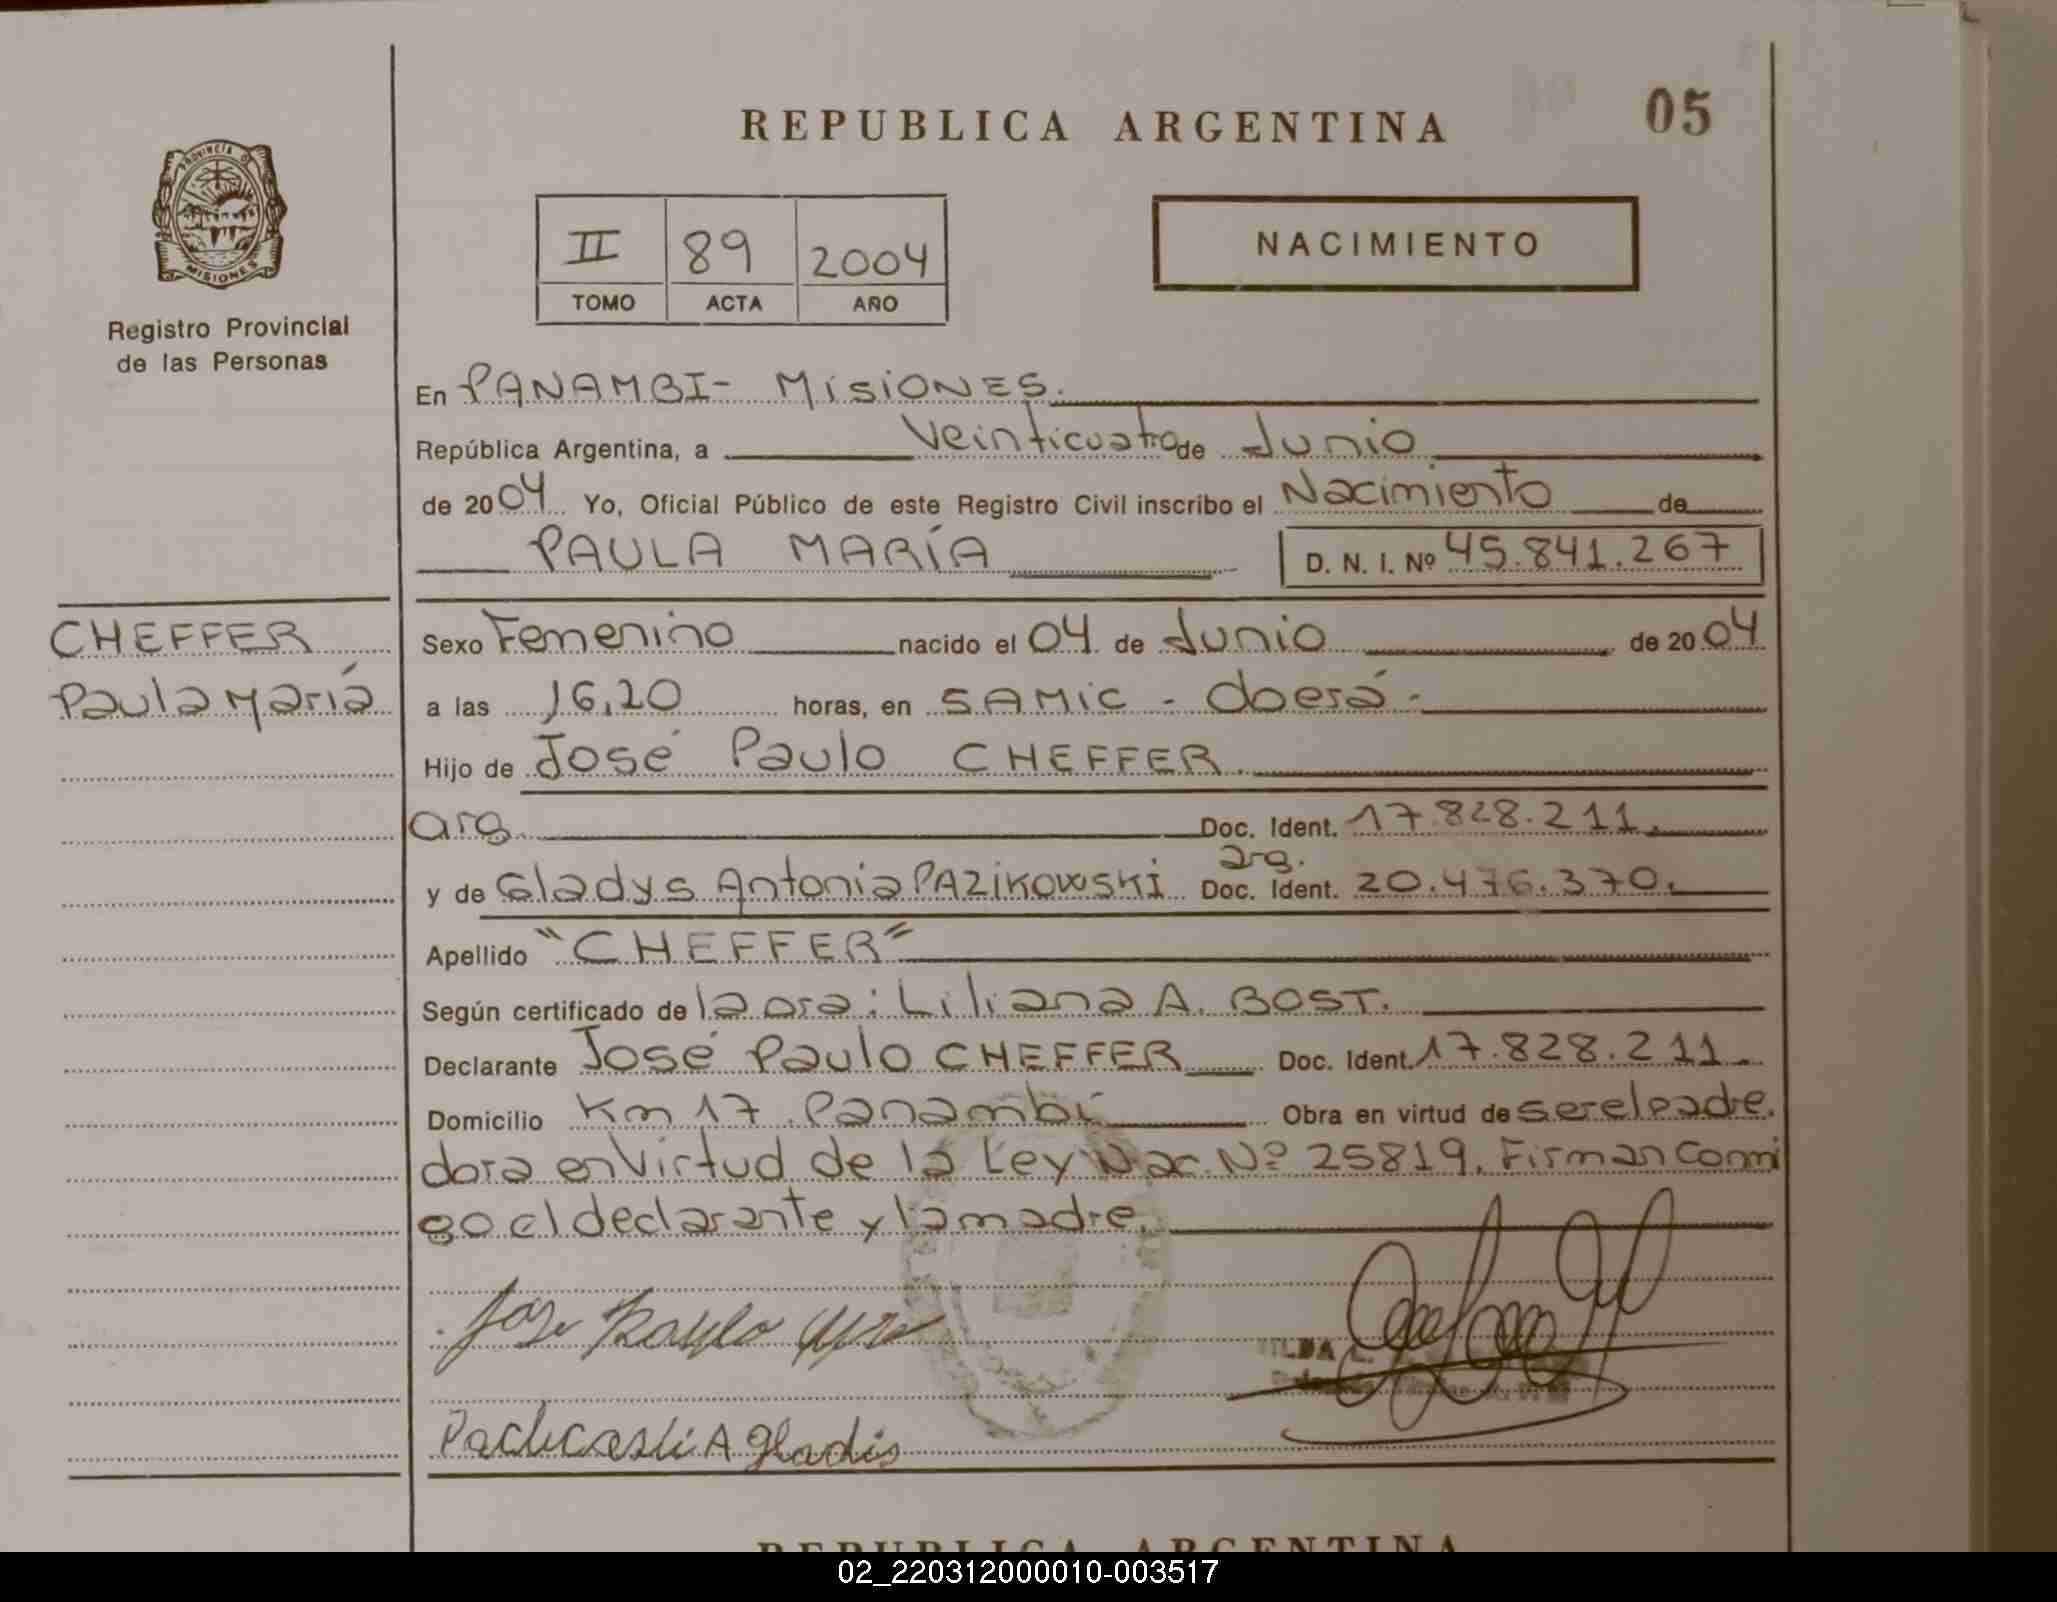 REPUBLICA ARGENTINA
05
PROVINCIA DE
MISIONES
Registro Provincial
de las Personas
II 89 2004
TOMO ACTA AÑO
NACIMIENTO
En PANAMBI- MISIONES.
República Argentina, a Veinticuatro de Junio
de 2004 Yo, Oficial Público de este Registro Civil inscribo el Nacimiento de
PAULA MARÍA D. N. I. Nº 45.841.267
CHEFFER
Paula María
Sexo Femenino nacido el 04 de Junio de 2004
a las 16,20 horas, en SAMIC - Oberá-
Hijo de José Paulo CHEFFER.
arg. Doc. Ident. 17.828.211.
arg.
y de Gladys Antonia PAZIKOWSKI Doc. Ident. 20.476.370.
Apellido "CHEFFER"
Según certificado de la Dra: Liliana A. BOST.
Declarante José Paulo CHEFFER Doc. Ident. 17.828.211.
Domicilio Km 17. Panambí Obra en virtud de ser el padre.
dora en Virtud de la Ley Nac. Nº 25819. Firman Conmi
go el declarante y la madre.
Jose Paulo
A Gladis
REPUBLICA ARGENTINA
02_220312000010-003517